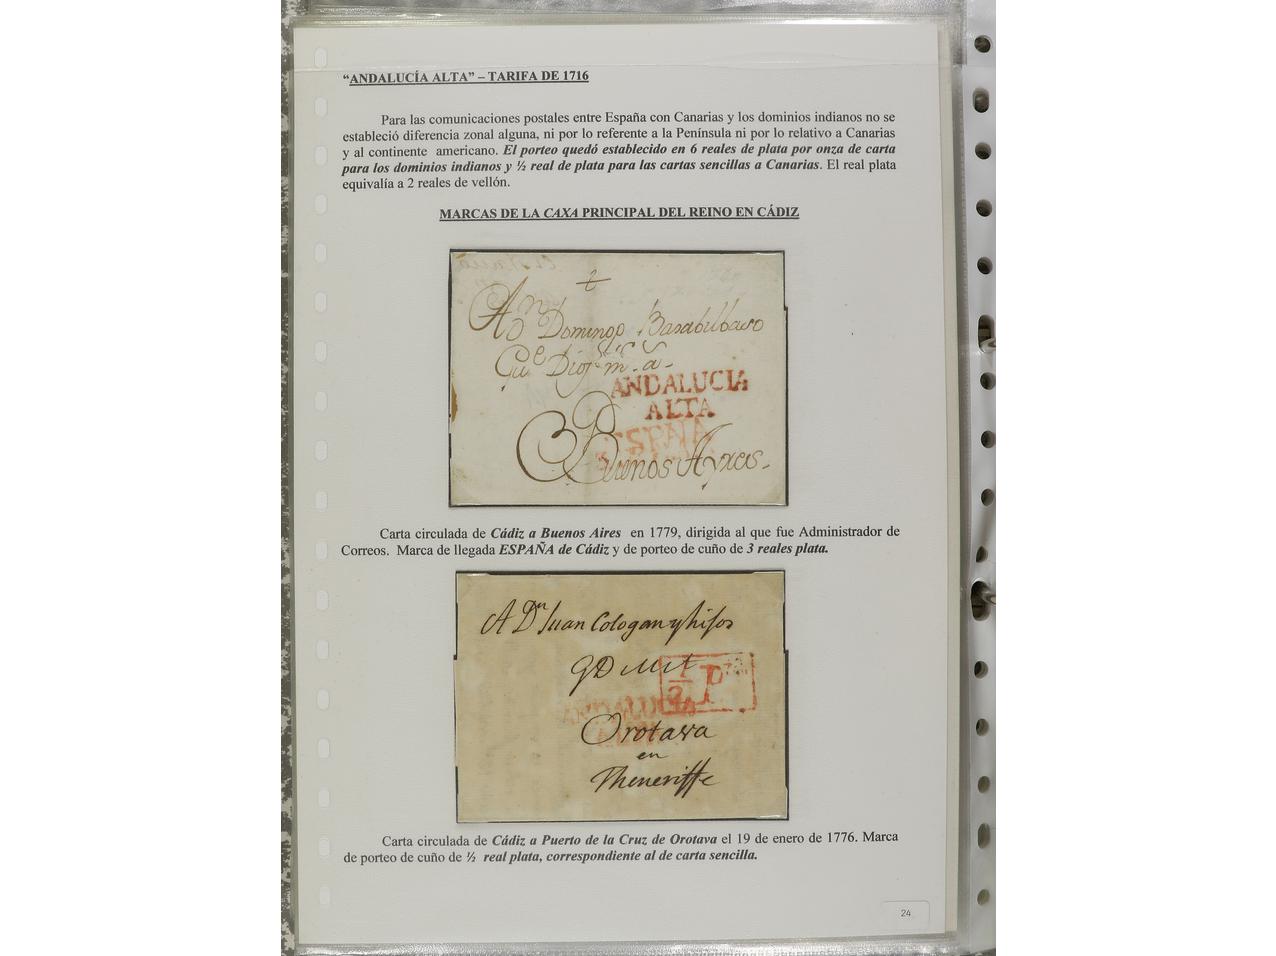 “ANDALUCÍA ALTA” – TARIFA DE 1716
Para las comunicaciones postales entre España con Canarias y los dominios indianos no se
estableció diferencia zonal alguna, ni por lo referente a la Península ni por lo relativo a Canarias
y al continente americano. El porteo quedó establecido en 6 reales de plata por onza de carta
para los dominios indianos y ½ real de plata para las cartas sencillas a Canarias. El real plata
equivalía a 2 reales de vellón.
MARCAS DE LA CAXA PRINCIPAL DEL REINO EN CÁDIZ
A Dn Domingo Basabilbaso
ANDALUCIA
ALTA
ESPAÑA
Buenos Ayres
Carta circulada de Cádiz a Buenos Aires en 1779, dirigida al que fue Administrador de
Correos. Marca de llegada ESPAÑA de Cádiz y de porteo de cuño de 3 reales plata.
A Dn Juan Cologan y hijos
1/2
ANDALUCIA
ALTA
Orotava
en
Theneriffe
Carta circulada de Cádiz a Puerto de la Cruz de Orotava el 19 de enero de 1776. Marca
de porteo de cuño de ½ real plata, correspondiente al de carta sencilla.
24